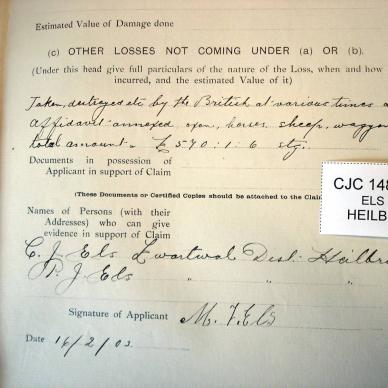 Estimated Value of Damage done
(c) OTHER LOSSES NOT COMING UNDER (a) OR (b).
(Under this head give full particulars of the nature of the Loss, when and how
incurred, and the estimated Value of it)
Taken, destroyed etc by the British at various times a
Affidavit annexed oxen, horses sheep, waggon
total amount. £570:1:6 stg.
Documents in possession of
Applicant in support of Claim
(These Documents or Certified Copies should be attached to the Claim
CJC 148
ELS
HEILB
Names of Persons (with their
Addresses) who can give
evidence in support of Claim
C. J. Els Zwartwal Dist: Heilbro
P. J. Els " " "
Signature of Applicant M. J. Els
Date 16/2/03